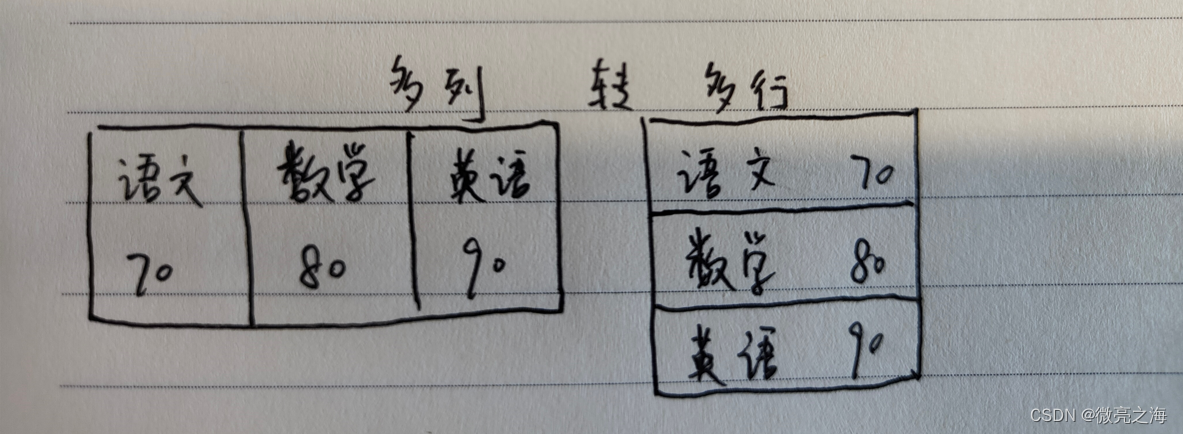 多列 转 多行
语文 数学 英语
70 80 90
语文 70
数学 80
英语 90
CSDN @微亮之海